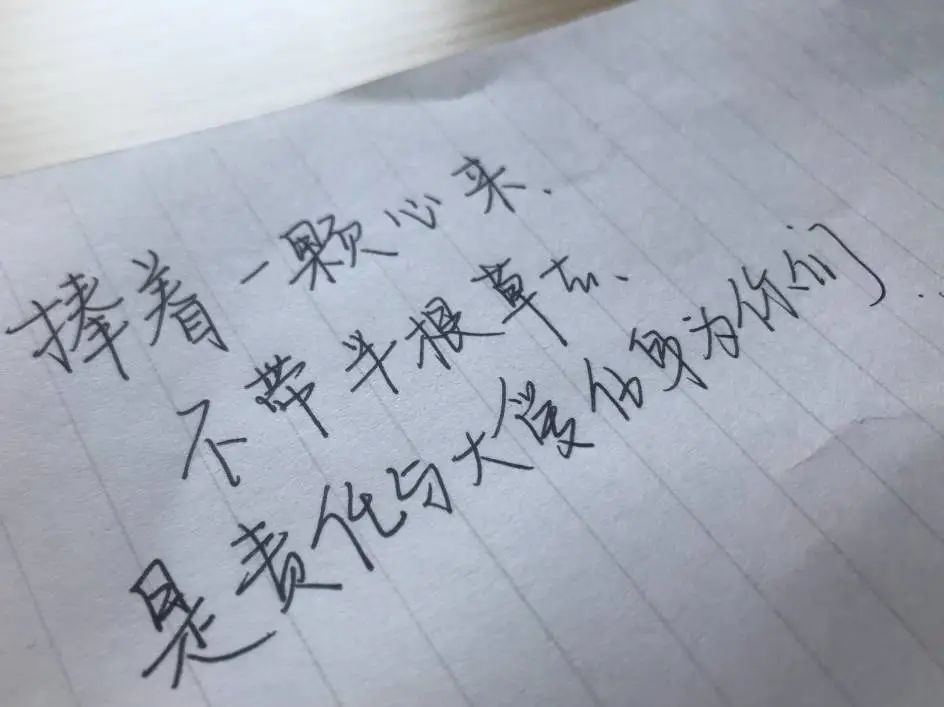 捧着一颗心来.
不带半根草去、
是责任与大爱化身为你们